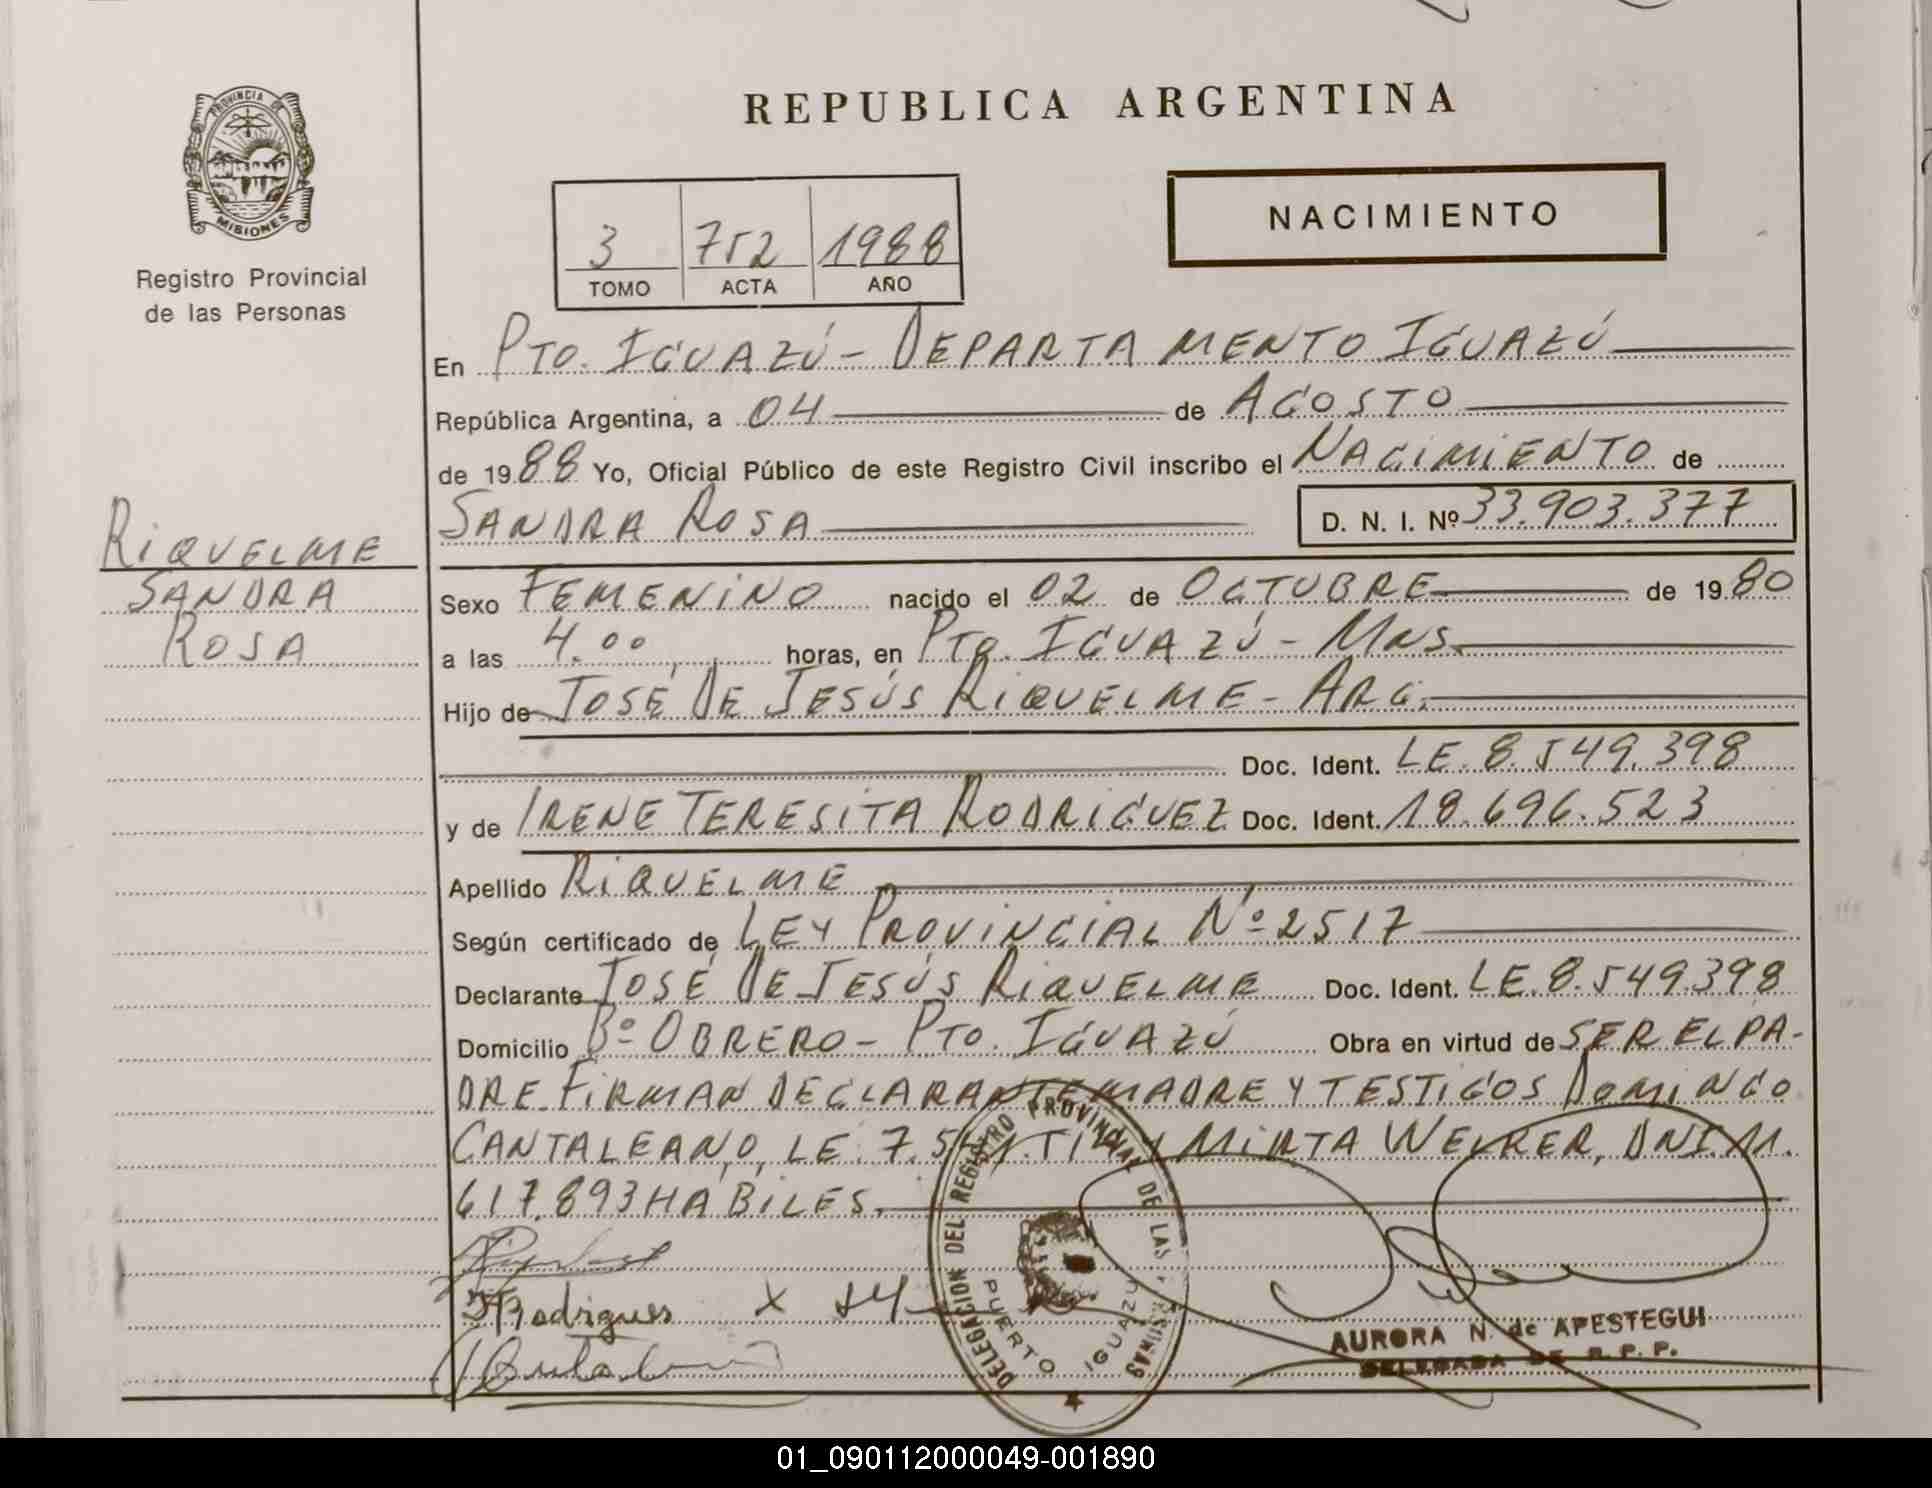 REPUBLICA ARGENTINA
PROVINCIA DE
MISIONES
Registro Provincial
de las Personas
NACIMIENTO
3 752 1988
TOMO ACTA AÑO
En PTO. IGUAZÚ - DEPARTAMENTO IGUAZÚ
República Argentina, a 04 de AGOSTO
de 1988 Yo, Oficial Público de este Registro Civil inscribo el NACIMIENTO de
SANDRA ROSA D. N. I. Nº 33.903.377
RIQUELME
SANDRA
ROSA
Sexo FEMENINO nacido el 02 de OCTUBRE de 1980
a las 4.00 horas, en PTO. IGUAZÚ - MNS.
Hijo de JOSÉ DE JESÚS RIQUELME - ARG.
Doc. Ident. LE. 8.549.398
y de IRENE TERESITA RODRIGUEZ Doc. Ident. 18.696.523
Apellido RIQUELME
Según certificado de LEY PROVINCIAL Nº 2517
Declarante JOSÉ DE JESÚS RIQUELME Doc. Ident. LE. 8.549.398
Domicilio Bº OBRERO - PTO. IGUAZÚ Obra en virtud de SER EL PA-
DRE. FIRMAN DECLARANTE MADRE Y TESTIGOS DOMINGO
CANTALEANO, LE. 7.5 Y MIRTA WELKER, DNI. 11.
617.893 HÁBILES.
Rodrigues
DELEGACION DEL REGISTRO PROVINCIAL DE LAS
PUERTO IGUAZU
AURORA N. de APESTEGUI
DELEGADA DE R. P. P.
01_090112000049-001890